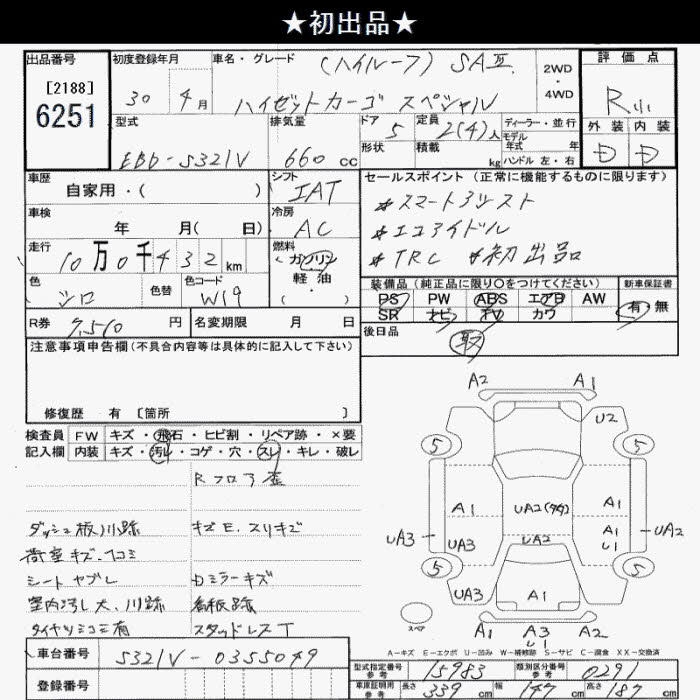 ★初出品★
出品番号
[2188]
6251
初度登録年月
30年4月
車名・グレード
(ハイルーフ) SAⅢ
ハイゼットカーゴ スペシャル
2WD
4WD
評価点
R
外装 内装
D D
型式
EBD-S321V
排気量
660cc
ドア
5
形状
定員
2(4)人
積載
kg
ディーラー・並行
モデル年式 年
ハンドル 左・右
車歴
自家用・( )
シフト
IAT
セールスポイント(正常に機能するものに限ります)
*スマートアシスト
*エコアイドル
*TRC *初出品
車検
年 月( 日)
冷房
AC
走行
10万0千432km
燃料
ガソリン
軽油
( ・ )
色
シロ
色替
色コード
W19
装備品(純正品に限り○をつけてください)
PS PW ABS エアB AW
SR ナビ TV カワ
新車保証書
有 無
R券
7,560円
名変期限 月 日
後日品
取
注意事項申告欄(不具合内容等は具体的に記入して下さい)
修復歴 有 [箇所 ]
検査員記入欄
FW キズ・飛石・ヒビ割・リペア跡・×要
内装 キズ・汚レ・コゲ・穴・スレ・キレ・破レ
Rフロア歪
ダッシュ板ハリ跡 キズE、スリキズ
荷室キズ、凹コミ
シートヤブレ Dミラーキズ
室内汚レ大、ハリ跡 看板跡
タイヤツミコミ有 スタッドレスT
A2 A1
U2
5 5
A1 UA2 A1
A1
U1
UA3 UA3 UA2 UA2
5 5
UA3 A1
スペア
A1 A3 A2
U1
A-キズ E-エクボ U-凹み W-補修跡 S-サビ C-腐食 XX-交換済
車台番号
S321V-0355049
登録番号
型式指定番号 参考
15983
類別区分番号 参考
0291
車庫証明用 参考
長さ 339cm
幅 147cm
高さ 187cm